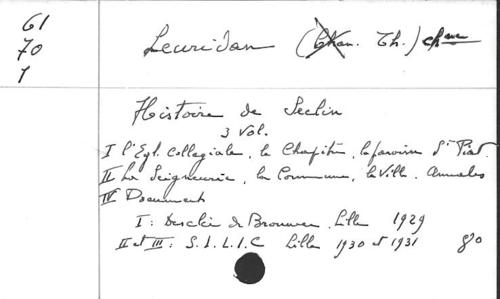 61
70
1
Leuridan (Chan. Th.) chne
Histoire de Seclin
3 Vol.
I l'Egl. Collégiale, le Chapitre, la paroisse St Piat.
II La Seigneurie, la Commune, la Ville. Annales
IV Document
I : Desclée de Brouwer, Lille 1929
II et III : S.I.L.I.C Lille 1930 et 1931 8°